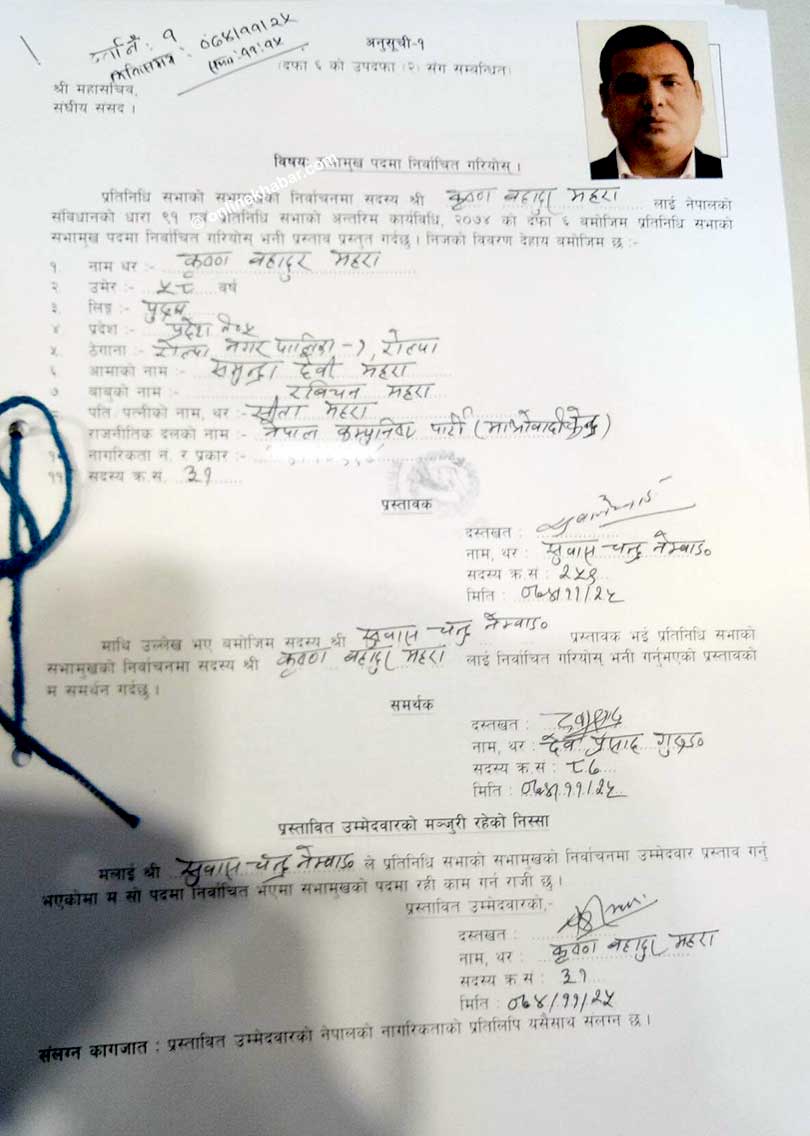 दर्ता नं: १
मिति समय: ०७४।११।२५
समय: ११:१५
अनुसूची-१
(दफा ६ को उपदफा (२) संग सम्बन्धित)
श्री महासचिव,
संघीय संसद ।
विषयः सभामुख पदमा निर्वाचित गरियोस् ।
onlinekhabar.com
प्रतिनिधि सभाको सभामुखको निर्वाचनमा सदस्य श्री कृष्ण बहादुर महरा लाई नेपालको
संविधानको धारा ९१ एवं प्रतिनिधि सभाको अन्तरिम कार्यविधि, २०७४ को दफा ६ बमोजिम प्रतिनिधि सभाको
सभामुख पदमा निर्वाचित गरियोस् भनी प्रस्ताव प्रस्तुत गर्दछु । निजको विवरण देहाय बमोजिम छ :-
१. नाम थर :- कृष्ण बहादुर महरा
२ उमेर :- ५८ वर्ष
३. लिङ्ग :- पुरुष
४ प्रदेश :- प्रदेश नं० ५
५. ठेगाना :- रोल्पा नगरपालिका-१, रोल्पा
६ आमाको नाम :- समुन्द्रा देवी महरा
७ बाबुको नाम :- रविचन महरा
पति पत्नीको नाम, थर :- सीता महरा
राजनीतिक दलको नाम :- नेपाल कम्युनिष्ट पार्टी (माओवादी केन्द्र)
१० नागरिकता नं. र प्रकार :-
११ सदस्य क्र.सं. ३१
प्रस्तावक
दस्तखत :
नाम, थर : सुवास चन्द्र नेम्वाङ
सदस्य क्र.सं : २५९
मिति : ०७४/११/२५
माथि उल्लेख भए बमोजिम सदस्य श्री सुवास चन्द्र नेम्वाङ प्रस्तावक भई प्रतिनिधि सभाको
सभामुखको निर्वाचनमा सदस्य श्री कृष्ण बहादुर महरा लाई निर्वाचित गरियोस् भनी गर्नुभएको प्रस्तावको
म समर्थन गर्दछु ।
समर्थक
दस्तखत :
नाम, थर : देव प्रसाद गुरुङ
सदस्य क्र.सं : ८७
मिति : ०७४/११/२५
प्रस्तावित उम्मेदवारको मञ्जुरी रहेको निस्सा
मलाई श्री सुवास चन्द्र नेम्वाङ ले प्रतिनिधि सभाको सभामुखको निर्वाचनमा उम्मेदवार प्रस्ताव गर्नु
भएकोमा म सो पदमा निर्वाचित भएमा सभामुखको पदमा रही काम गर्न राजी छु ।
प्रस्तावित उम्मेदवारको,-
दस्तखत :
नाम, थर : कृष्ण बहादुर महरा
सदस्य क्र सं : ३१
मिति : ०७४/११/२५
संलग्न कागजात : प्रस्तावित उम्मेदवारको नेपालको नागरिकताको प्रतिलिपि यसैसाथ संलग्न छ ।